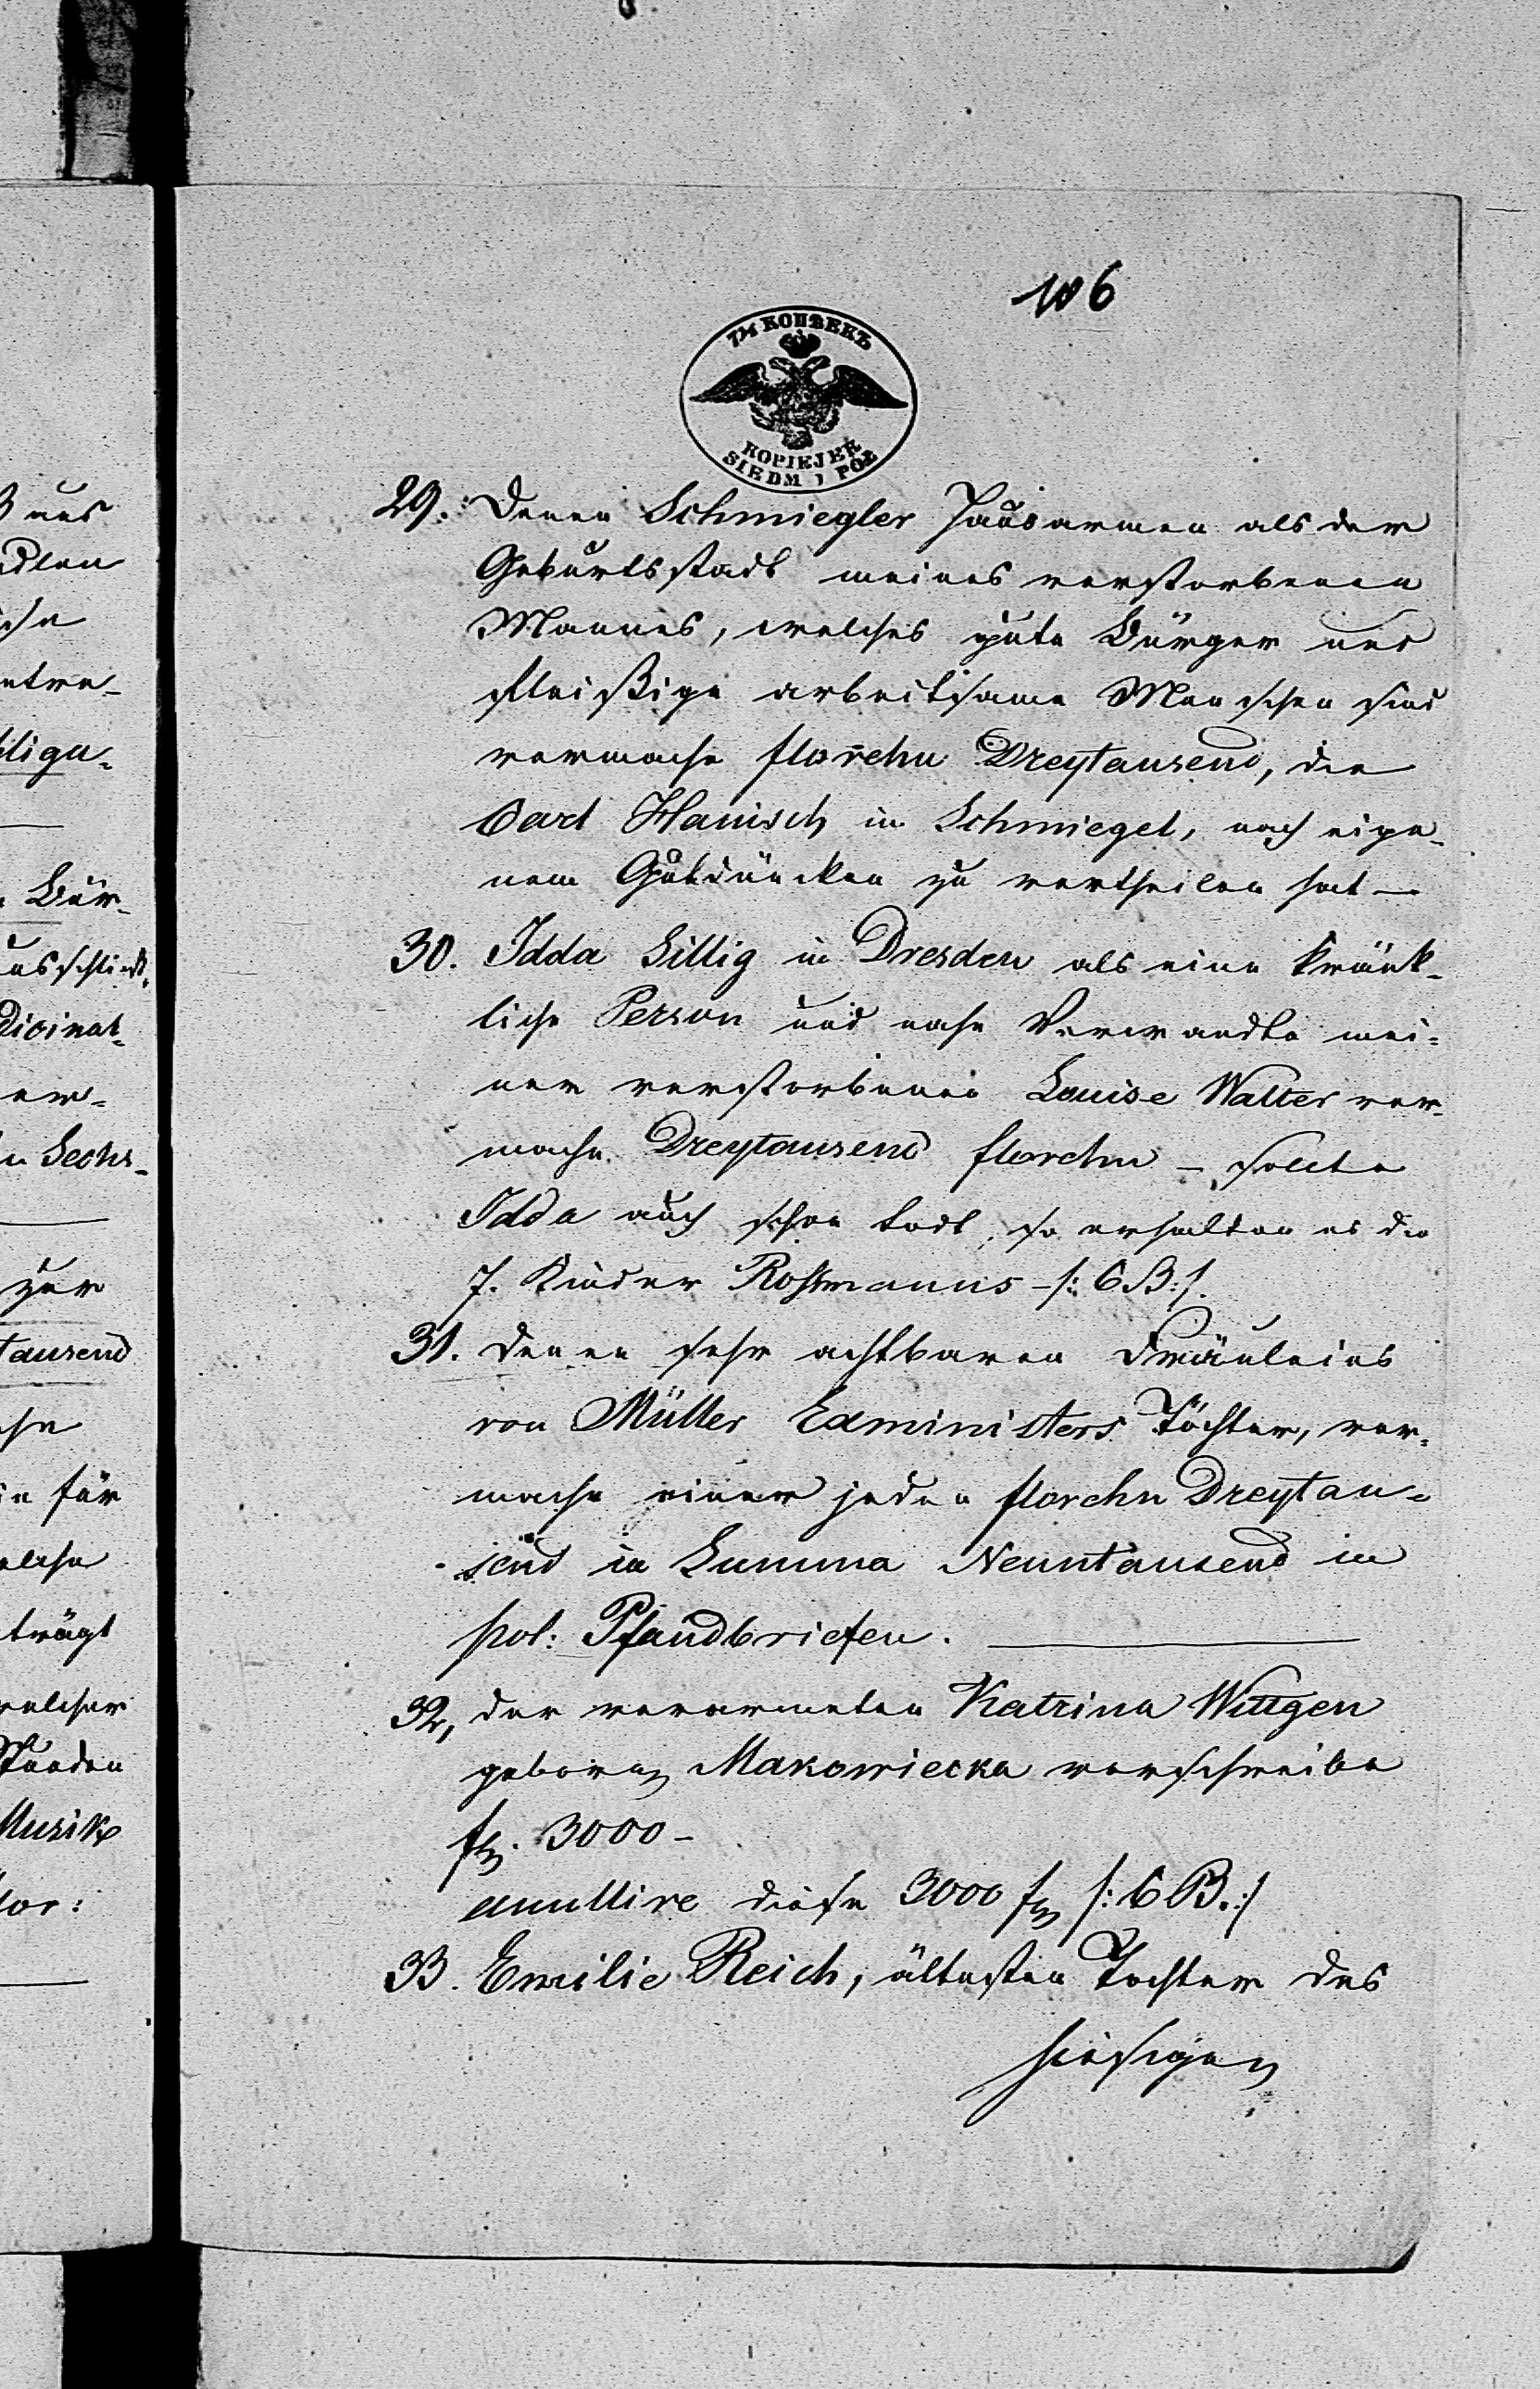 106
7½ КОПѢЕКЪ
KOPIEJEK
SIEDM I PÓŁ
29. Denen Schmiegler Hausarmen als der
Geburtsstadt meines verstorbenen
Mannes, welches gute Bürger und
fleißige arbeitsame Menschen sind
vermache florehn Dreytausend, die
Carl Hanisch in Schmiegel, nach eige-
nem Gutdüncken zu vertheilen hat —
30. Idda Sillig in Dresden als eine kränk-
liche Person und nahe Verwandte mei-
ner verstorbenen Louise Walter ver-
mache Dreytausend florehn – sollte
Idda auch schon todt, so erhalten es die
7. Kinder Roßmanns – /: C B :/.
31. Denen sehr achtbaren Fräuleins
von Müller Exministers Töchter, ver-
mache einer jeden florehn Dreytau-
send in Summa Neuntausend in
pol: Pfandbriefen.
32, der verarmeten Katrina Wittgen
geboren Makowiecka verschreibe
fl. 3000 –
anullire diese 3000 fl /: C B. :/
33. Emilie Reich, ältesten Tochter des
hiesigen
und
Bür-
Sechs-
zur
tausend
für
trägt
Musik